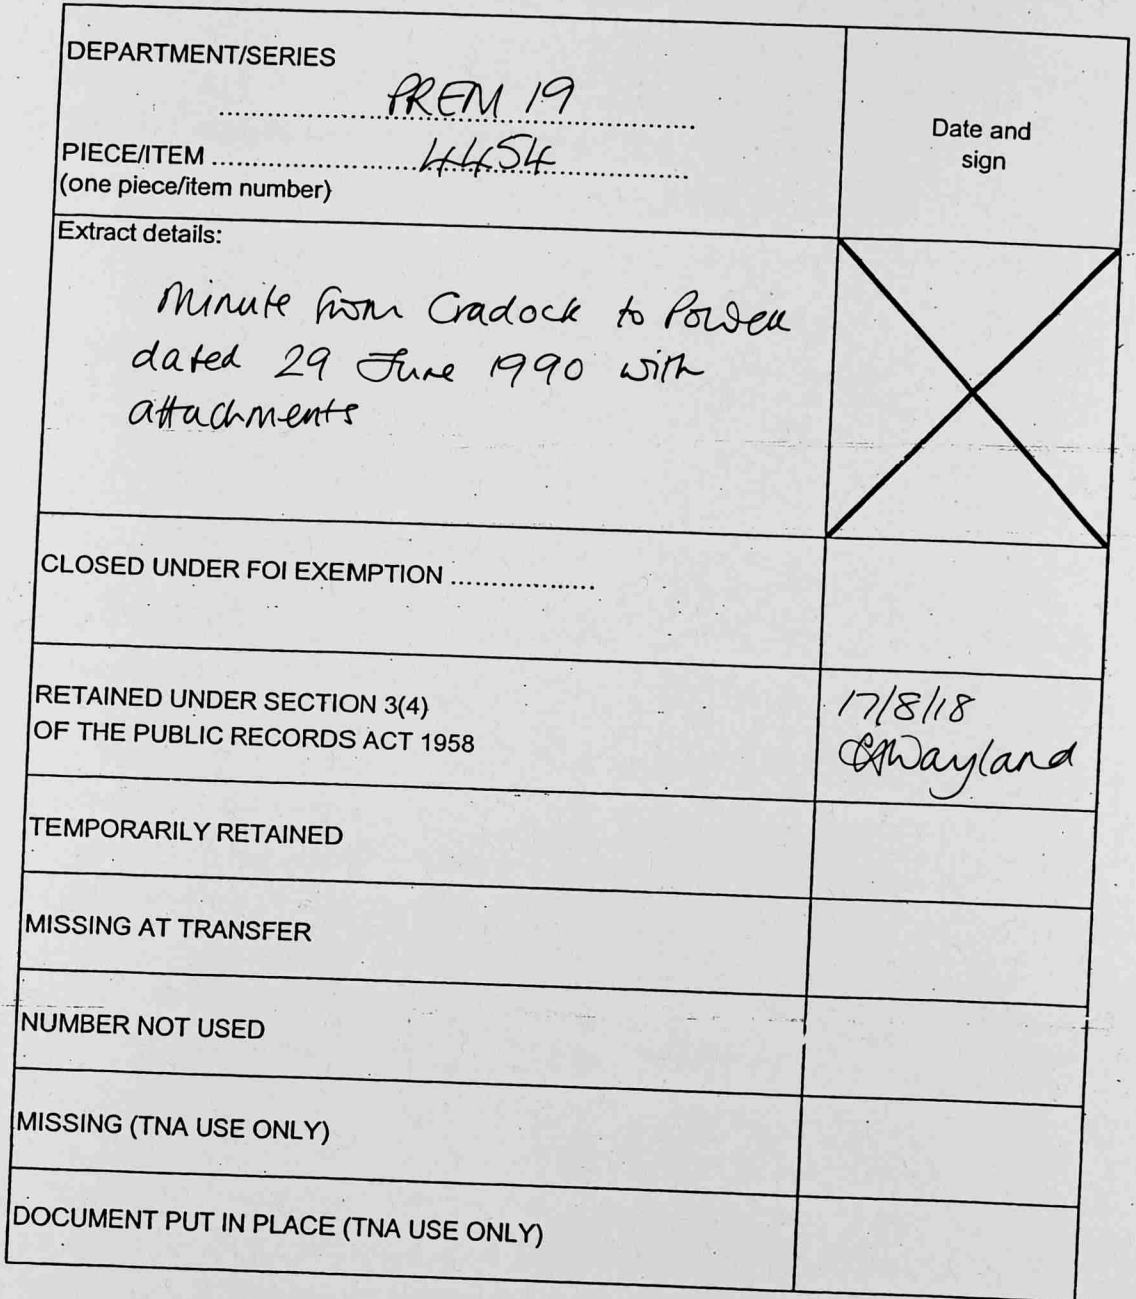 DEPARTMENT/SERIES
PREM 19
Date and
sign
PIECE/ITEM ........................ 4454
(one piece/item number)
Extract details:
Minute from Cradock to Powell
dated 29 June 1990 with
attachments
CLOSED UNDER FOI EXEMPTION ..................
RETAINED UNDER SECTION 3(4)
OF THE PUBLIC RECORDS ACT 1958
17/8/18
Wayland
TEMPORARILY RETAINED
MISSING AT TRANSFER
NUMBER NOT USED
MISSING (TNA USE ONLY)
DOCUMENT PUT IN PLACE (TNA USE ONLY)